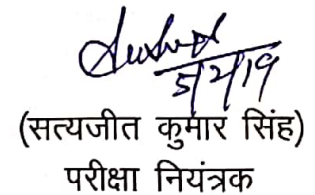 5/2/19
(सत्यजीत कुमार सिंह)
परीक्षा नियंत्रक